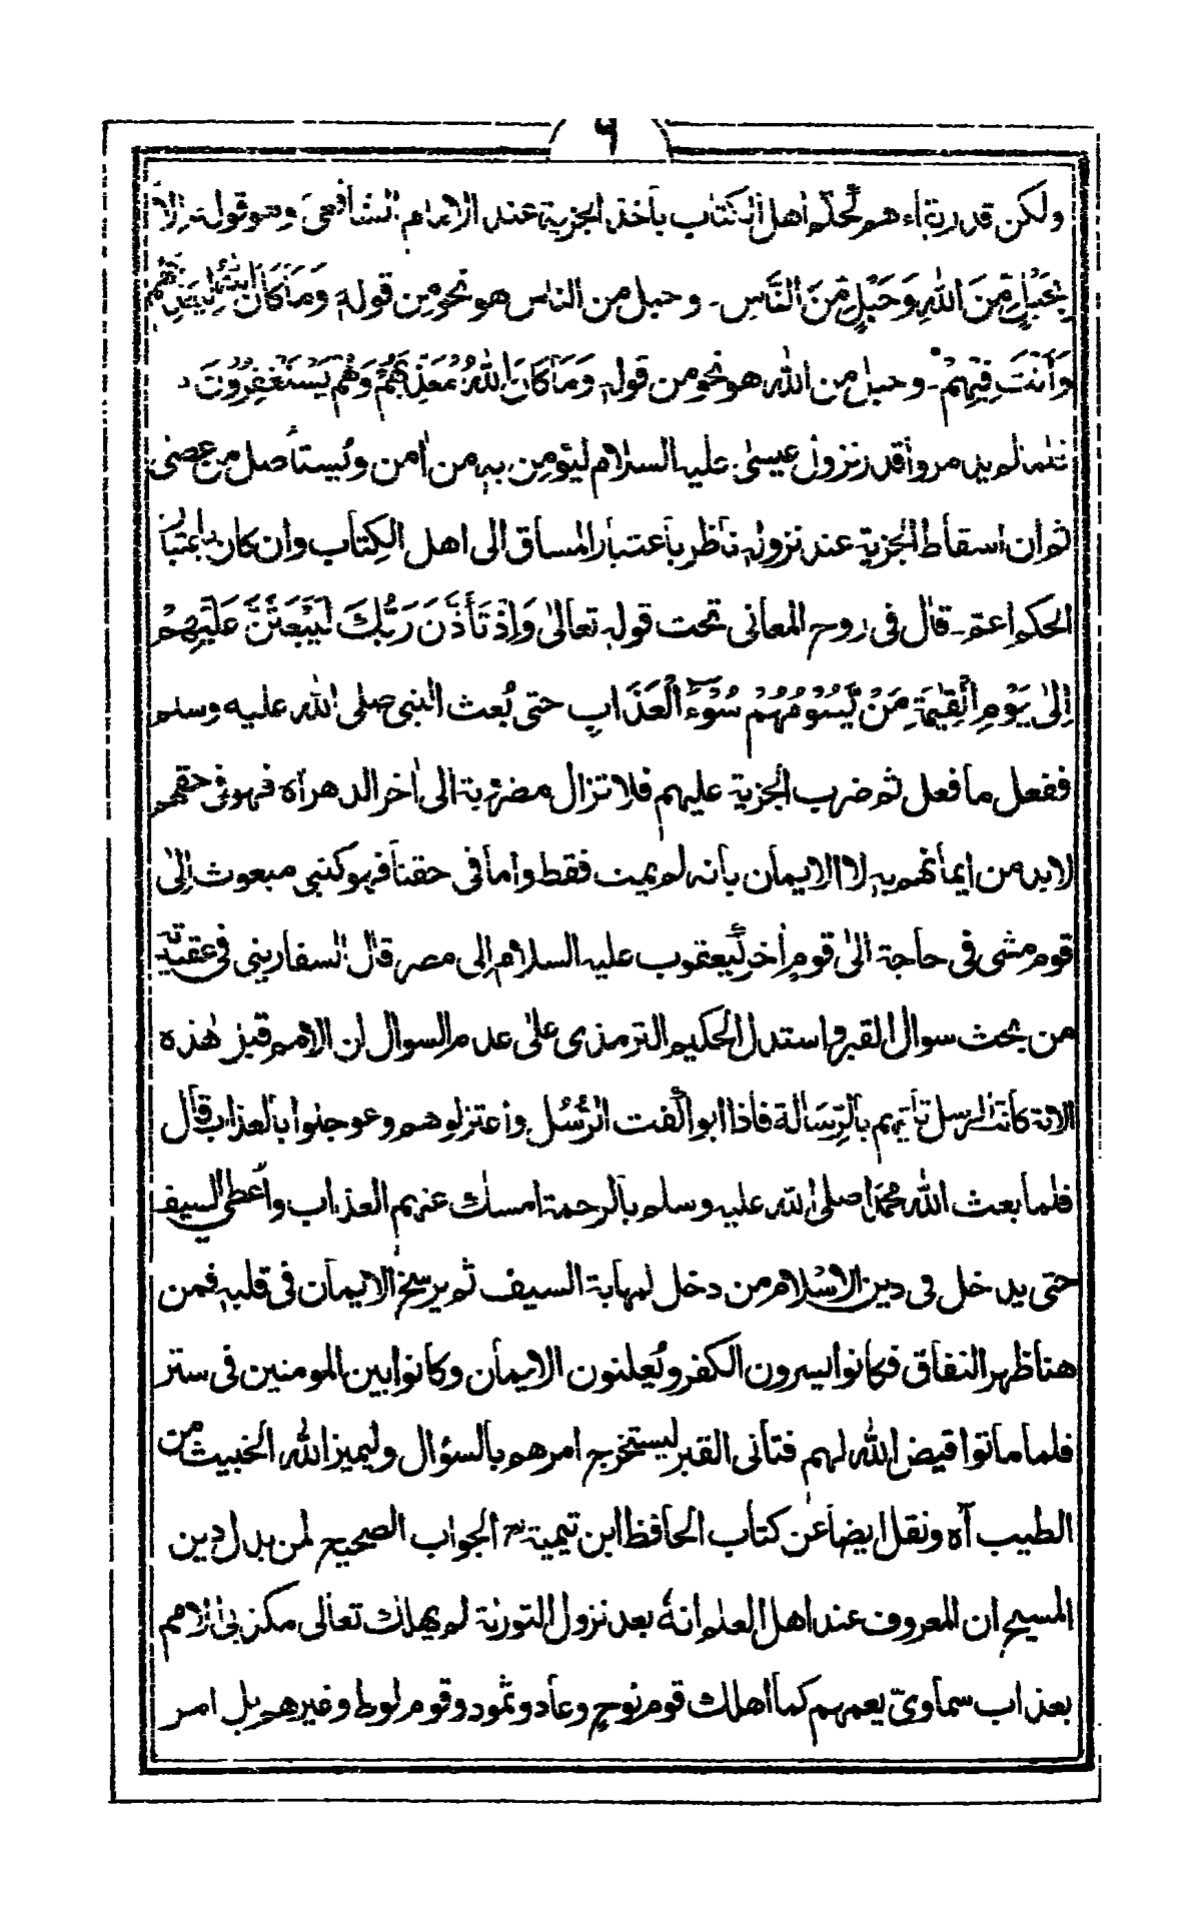 ٦
ولكن قد رتب اءهم لحكم اهل الكتاب بأخذ الجزية عند الامام الشافعى وهو قوله الا
بِحَبْلٍ مِّنَ اللهِ وَحَبْلٍ مِّنَ النَّاسِ ۔ وحبل من الناس هو نحو من قوله وَمَا كَانَ اللهُ لِيُعَذِّبَهُمْ
وَاَنْتَ فِيْهِمْ ۔ وحبل من الله هو نحو من قوله وَمَا كَانَ اللهُ مُعَذِّبَهُمْ وَهُمْ يَسْتَغْفِرُوْنَ ،
فلما لم يد مروا قد ر نزول عيسىٰ عليه السلام ليؤمن به من اٰمن ويُستأصل من عصىٰ
ثم ان اسقاط الجزية عند نزوله ناظر بأعتبار المسأق الى اهل الكِتاب وان كان بأعتبأ
الحكم اعم ۔ قال فى روح المعانى تحت قوله تعألىٰ وَاِذْ تَأَذَّنَ رَبُّكَ لَيَبْعَثَنَّ عَلَيْهِمْ
اِلىٰ يَوْمِ الْقِيٰمَةِ مَنْ يَّسُوْمُهُمْ سُوْٓءَ الْعَذَابِ حتى بُعث النبى صلى الله عليه وسلم
ففعل مأ فعل ثم ضرب الجزية عليهم فلا تزال مضروبة الى اٰخر الدهر اه فهو فى حقهم
لا بد من ايمأنهم به لا الايمأن بأنه لم يمت فقط وامأ فى حقنا فهو كنبى مبعوث الىٰ
قوم مشى فى حاجة الىٰ قوم اٰخر كيعقوب عليه السلام الى مصر قال السفارينى فى عقيدته
من بحث سوال القبر واستدل الحكيم الترمذى علىٰ عدم السوال ان الامم قبل هٰذه
الامة كأنت الرسل تأتيهم بالرِّسَالة فاذا ابوا كفت الرُّسُل واعتزلوهم وعوجلوا بألعذاب قأل
فلمأ بعث الله محمدا صلى الله عليه وسلم بألرحمة امسك عنهم العذاب واُعطى السيف
حتى يدخل فى دين الاسْلام من دخل لمهابة السيف ثم يرسخ الايمأن فى قلبه فمن
هنأ ظهر النفأق فكأنوا يسرون الكفر ويُعلنون الايمأن وكأنوا بين المومنين فى ستر
فلما مأتوا قيض الله لهم فتأنى القبر ليستخرج امرهم بألسؤال وليميز الله الخبيث من
الطيب اٰه ونقل ايضاً عن كتأب الحافظ ابن تيمية رح الجواب الصحيح لمن بدل دين
المسيح ان المعروف عند اهل العلم انهٗ بعد نزول التورٰىة لم يهلك تعألى مكذبى الامم
بعذاب سمأوىّ يعمهم كمأ اهلك قوم نوحٍ وعأد وثمود وقوم لوط وغيرهم بل امر